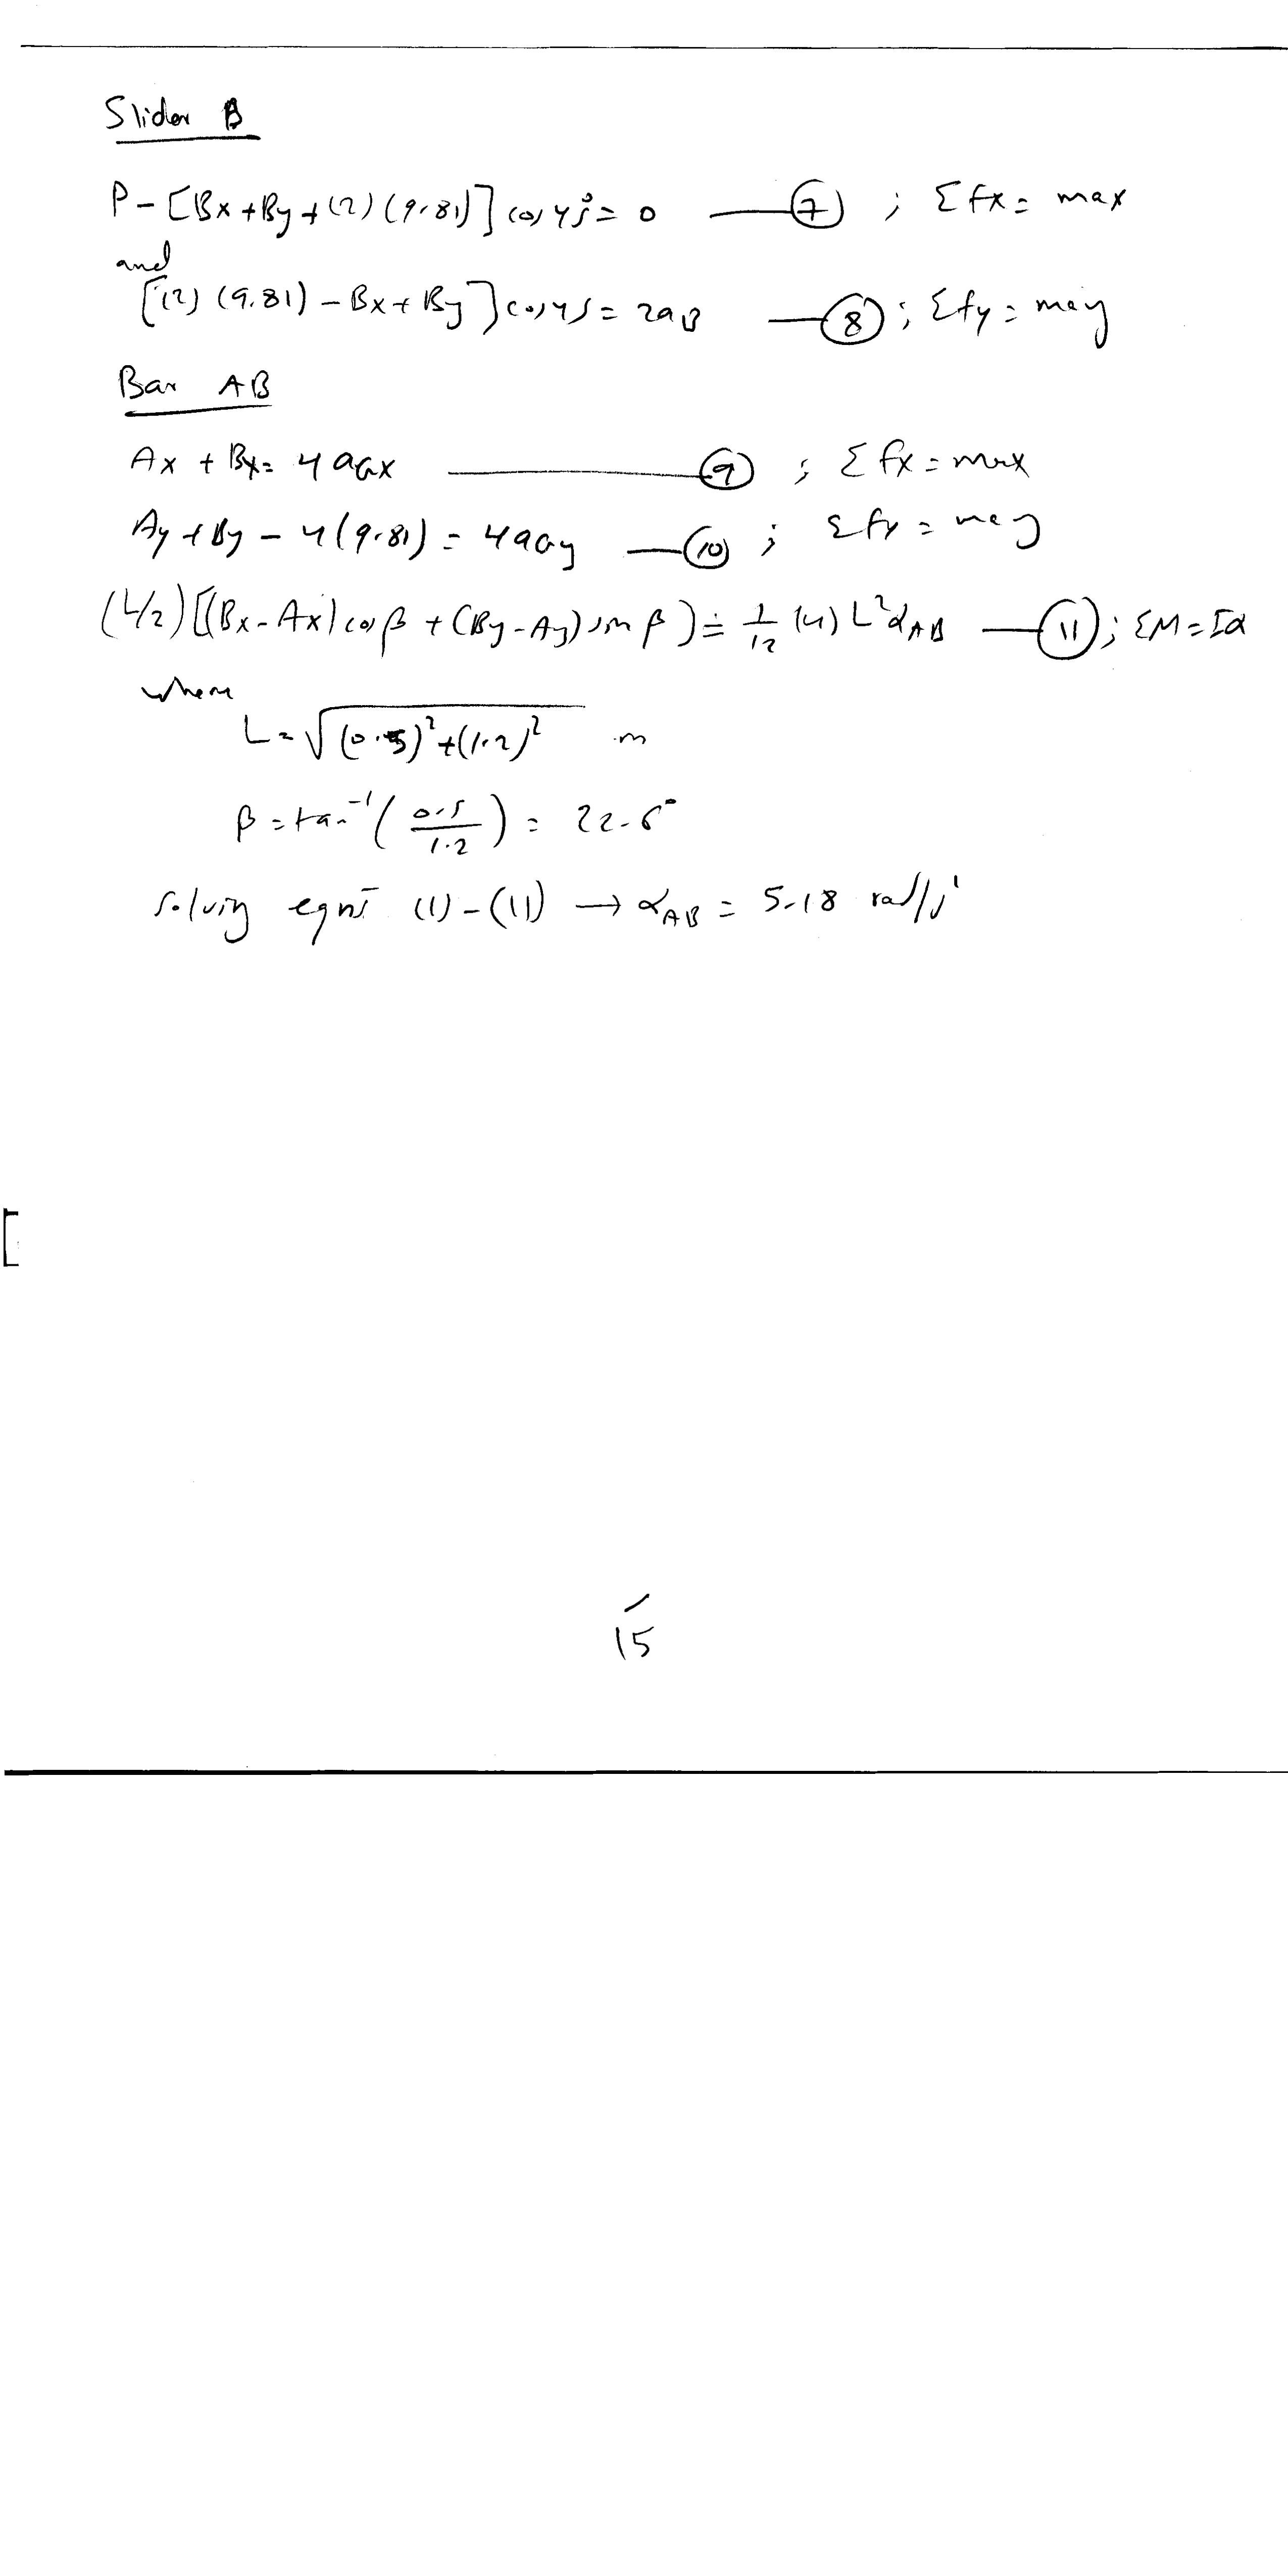 Slider B
P - [Bx + By + (2) (9.81)] cos 45° = 0 —— ⑦ ; Σfx = max
and
[(2) (9.81) - Bx + By] cos 45 = 2aB —— ⑧ ; Σfy = may
Bar AB
Ax + Bx = 4 aGx —— ⑨ ; Σfx = max
Ay + By - 4(9.81) = 4aGy —— ⑩ ; Σfy = may
(L/2) [(Bx - Ax) cos β + (By - Ay) sin β] = 1/12 (4) L² αAB —— ⑪ ; ΣM = Iα
where
L = √(0.5)² + (1.2)² m
β = tan⁻¹ (0.5/1.2) = 22.6°
solving eqns (1) - (11) → αAB = 5.18 rad/s²
[
15